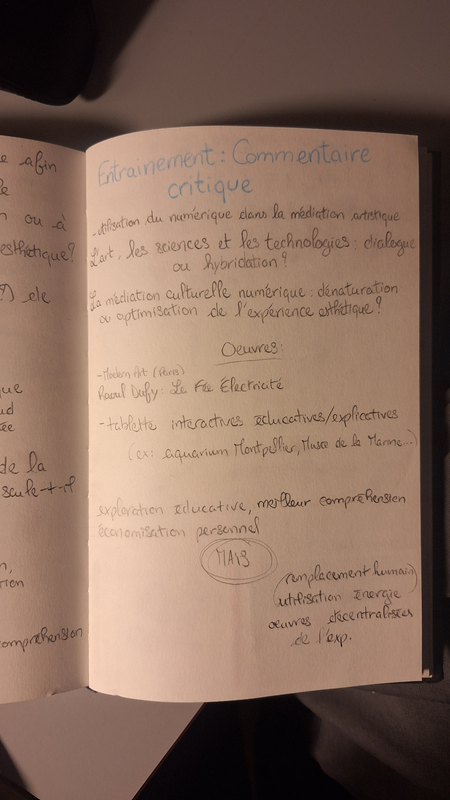 e afin
le
n ou à
esthétique?
?) ele
que
ud
tée
de la
scule-t-il
n,
tion
compréhension
Entrainement : Commentaire
critique
-utilisation du numérique dans la médiation artistique
L'art, les sciences et les technologies : dialogue
ou hybridation?
La médiation culturelle numérique : dénaturation
ou optimisation de l'expérience esthétique?
Oeuvres:
-Modern Art (Paris)
Raoul Dufy : La Fée Électricité
-tablette interactives éducatives/explicatives
(ex: aquarium Montpellier, Musée de la Marine...)
exploration éducative, meilleur compréhension
économisation personnel
MAIS
remplacement humain
utilisation énergie
oeuvres décentralisées
de l'exp.